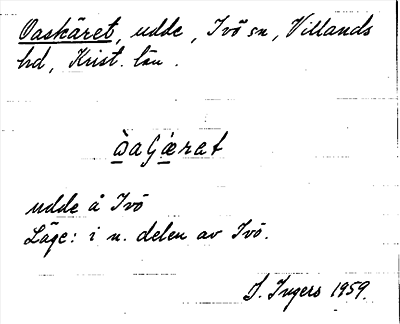 Oaskäret, udde, Ivö sn, Villands
hd, Krist. län.
ὼaGǽret
udde å Ivö
Läge: i n. delen av Ivö.
I. Ingers 1959.